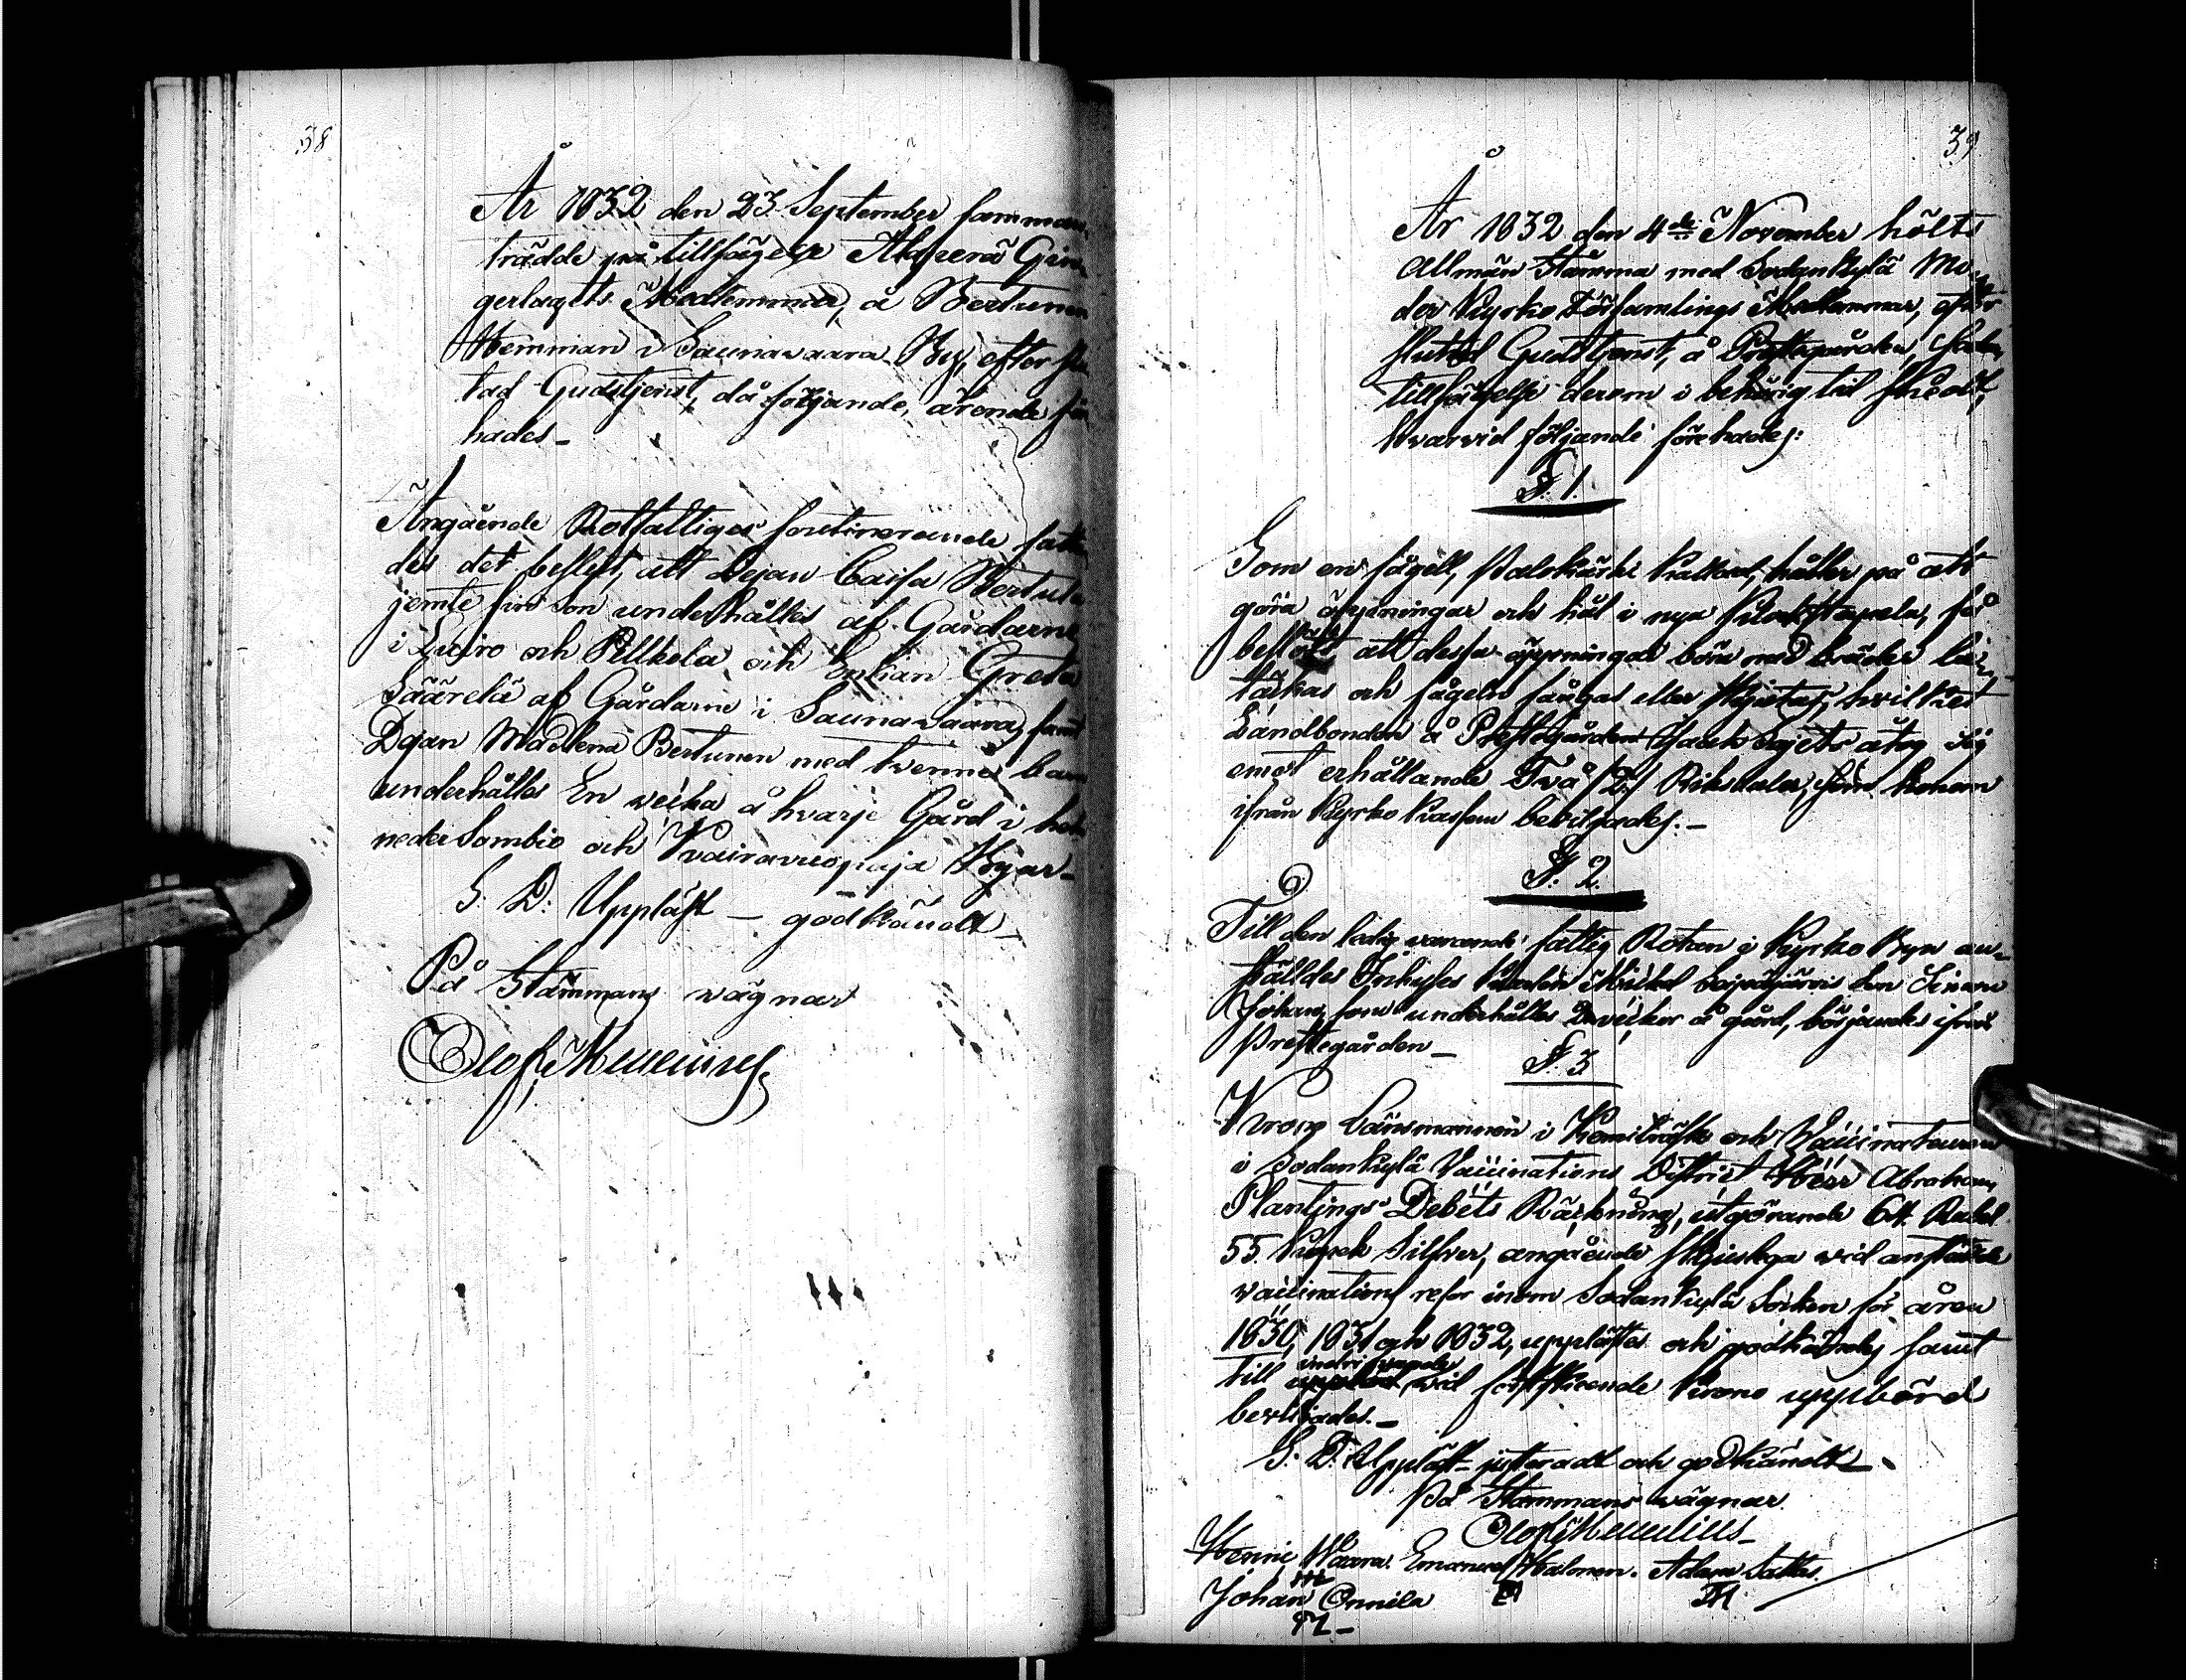 38
År 1832 den 23 September samman-
trädde på tillsägelse Alaperä Gin-
gerlagets Medlemmar, å Bertunen
Hemman i Saunavaara By, efter slu-
tad Gudstjenst, då följande ärende för
hades_
Angående Rotfattiges soutinerande fatta
des det beslut, att Pejan Caisa Bertula
jemte sin son underhålles af Gårdarne
i Luiro och Pellkola och Enkan Greta
Säärelä af Gårdarne i Saunavaara, samt
Madlena Bertunen med tvenne barn
underhålles En vecka å hvarje Gård i hela
neder Sombio och Kairavuopaja Byar_
S. D: Uppläst _ godkändt_
På Stämmans vägnar
Olof
39.
År 1832 den 4de November hölts
Allmän Stämma med Sodankylä Mo-
der Kyrko Församlings Medlemmar, efter
slutad Gudstjenst, å Prestegården, sedan
tillsägelse derom i behörig tid skedt,
hvarvid följande förehades:
§. 1.
Som en fågell, Palokärki kallad, håller på att
göra öppningar och hål i nya Klockstapeln, så
beslöts att dessa öppningar böra med bräder
täckas och fågeln fångas eller skjutas, hvilket
Landbonden å Prestegården Isach åtog sig
emot erhållande Två /2:/ Riksdaler, som honom
ifrån Kyrko Kassan beviljades._
§. 2.
Till den ledig varande fattig Rotan i Kyrko Byn an-
ställdes Inhyses Mickel son Simon
Johan, som underhålles 2 veckor å gård, börjandes ifrån
Prestegården_
§. 3
Krono Länsmannen i Kemiträsk och Vaccinateuren
i Sodankylä Vaccinations District Herr Abraham
Plantings Debets Räckning, utgörande 64. Rubel
55. Kopek Silfver, angående skjutsga vid anstälde
vaccinations resor inom Sodankylä Socken för åren
1830, 1831 och 1832, upplästes och godkändes samt
till indrifvande vid förestående Krono uppbörd
beviljades._
S. D. Uppläst justeradt och godkändt_
På Stämmans vägnar
Olof
Henric Waara. Emanuel Halonen. Adam Sattas.
Johan Onnela